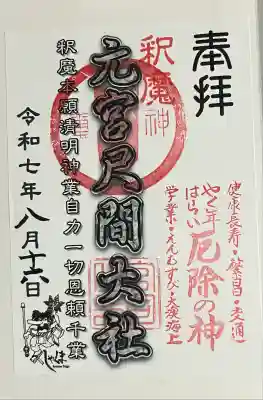 奉拝
健康長寿・繁昌・交通
やく年
はらい
厄除の神
学業・えんむすび・大漁海上
釈魔神
元宮尺間大社
釈魔本願清明神業自力一切恩頼千業
令和七年八月十六日
しゃくま